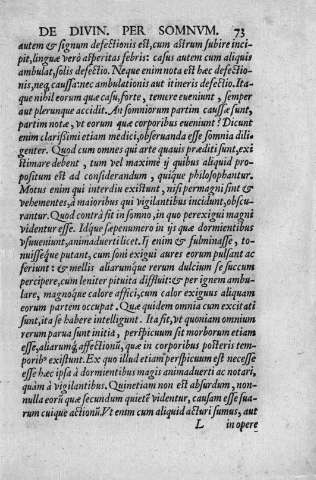 DE DIVIN. PER SOMNVM. 73
autem & signum defectionis est, cum astrum subire inci-
pit, linguæ verò asperitas febris: casus autem cum aliquis
ambulat, solis defectio. Neque enim nota est hæc defectio-
nis, neq; caussa: nec ambulationis aut itineris defectio. Ita-
que nihil eorum quæ casu, forte, temere eueniunt, semper
aut plerunque accidit. An somniorum partim caussæ sunt,
partim notæ, vt eorum quæ corporibus eueniunt? Dicunt
enim clarissimi etiam medici, obseruanda esse somnia dili-
genter. Quod cum omnes qui arte quauis præditi sunt, exi-
stimare debent, tum vel maxime ij quibus aliquid pro-
positum est ad considerandum, quique philosophantur.
Motus enim qui interdiu existunt, nisi permagni sint &
vehementes, à maioribus qui vigilantibus incidunt, obscu-
rantur. Quod contrà fit in somno, in quo perexigui magni
videntur esse. Idque sæpenumero in ijs quæ dormientibus
vsuueniunt, animaduerti licet. Ij enim & fulminasse, to-
nuisséque putant, cum soni exigui aures eorum pulsant ac
feriunt: & mellis aliarumque rerum dulcium se succum
percipere, cum leniter pituita diffluit: & per ignem ambu-
lare, magnóque calore affici, cum calor exiguus aliquam
eorum partem occupat. Quæ quidem omnia cum excitati
sunt, ita se habere intelligunt. Ita fit, vt quoniam omnium
rerum parua sunt initia, perspicuum sit morborum etiam
esse, aliarumq; affectionũ, quæ in corporibus posteris tem-
poribº existunt. Ex quo illud etiam perspicuum est necesse
esse hæc ipsa à dormientibus magis animaduerti ac notari,
quàm à vigilantibus. Quinetiam non est absurdum, non-
nulla eorũ quæ secundum quietẽ videntur, causam esse sua-
rum cuique actionũ. Vt enim cum aliquid acturi sumus, aut
L in opere